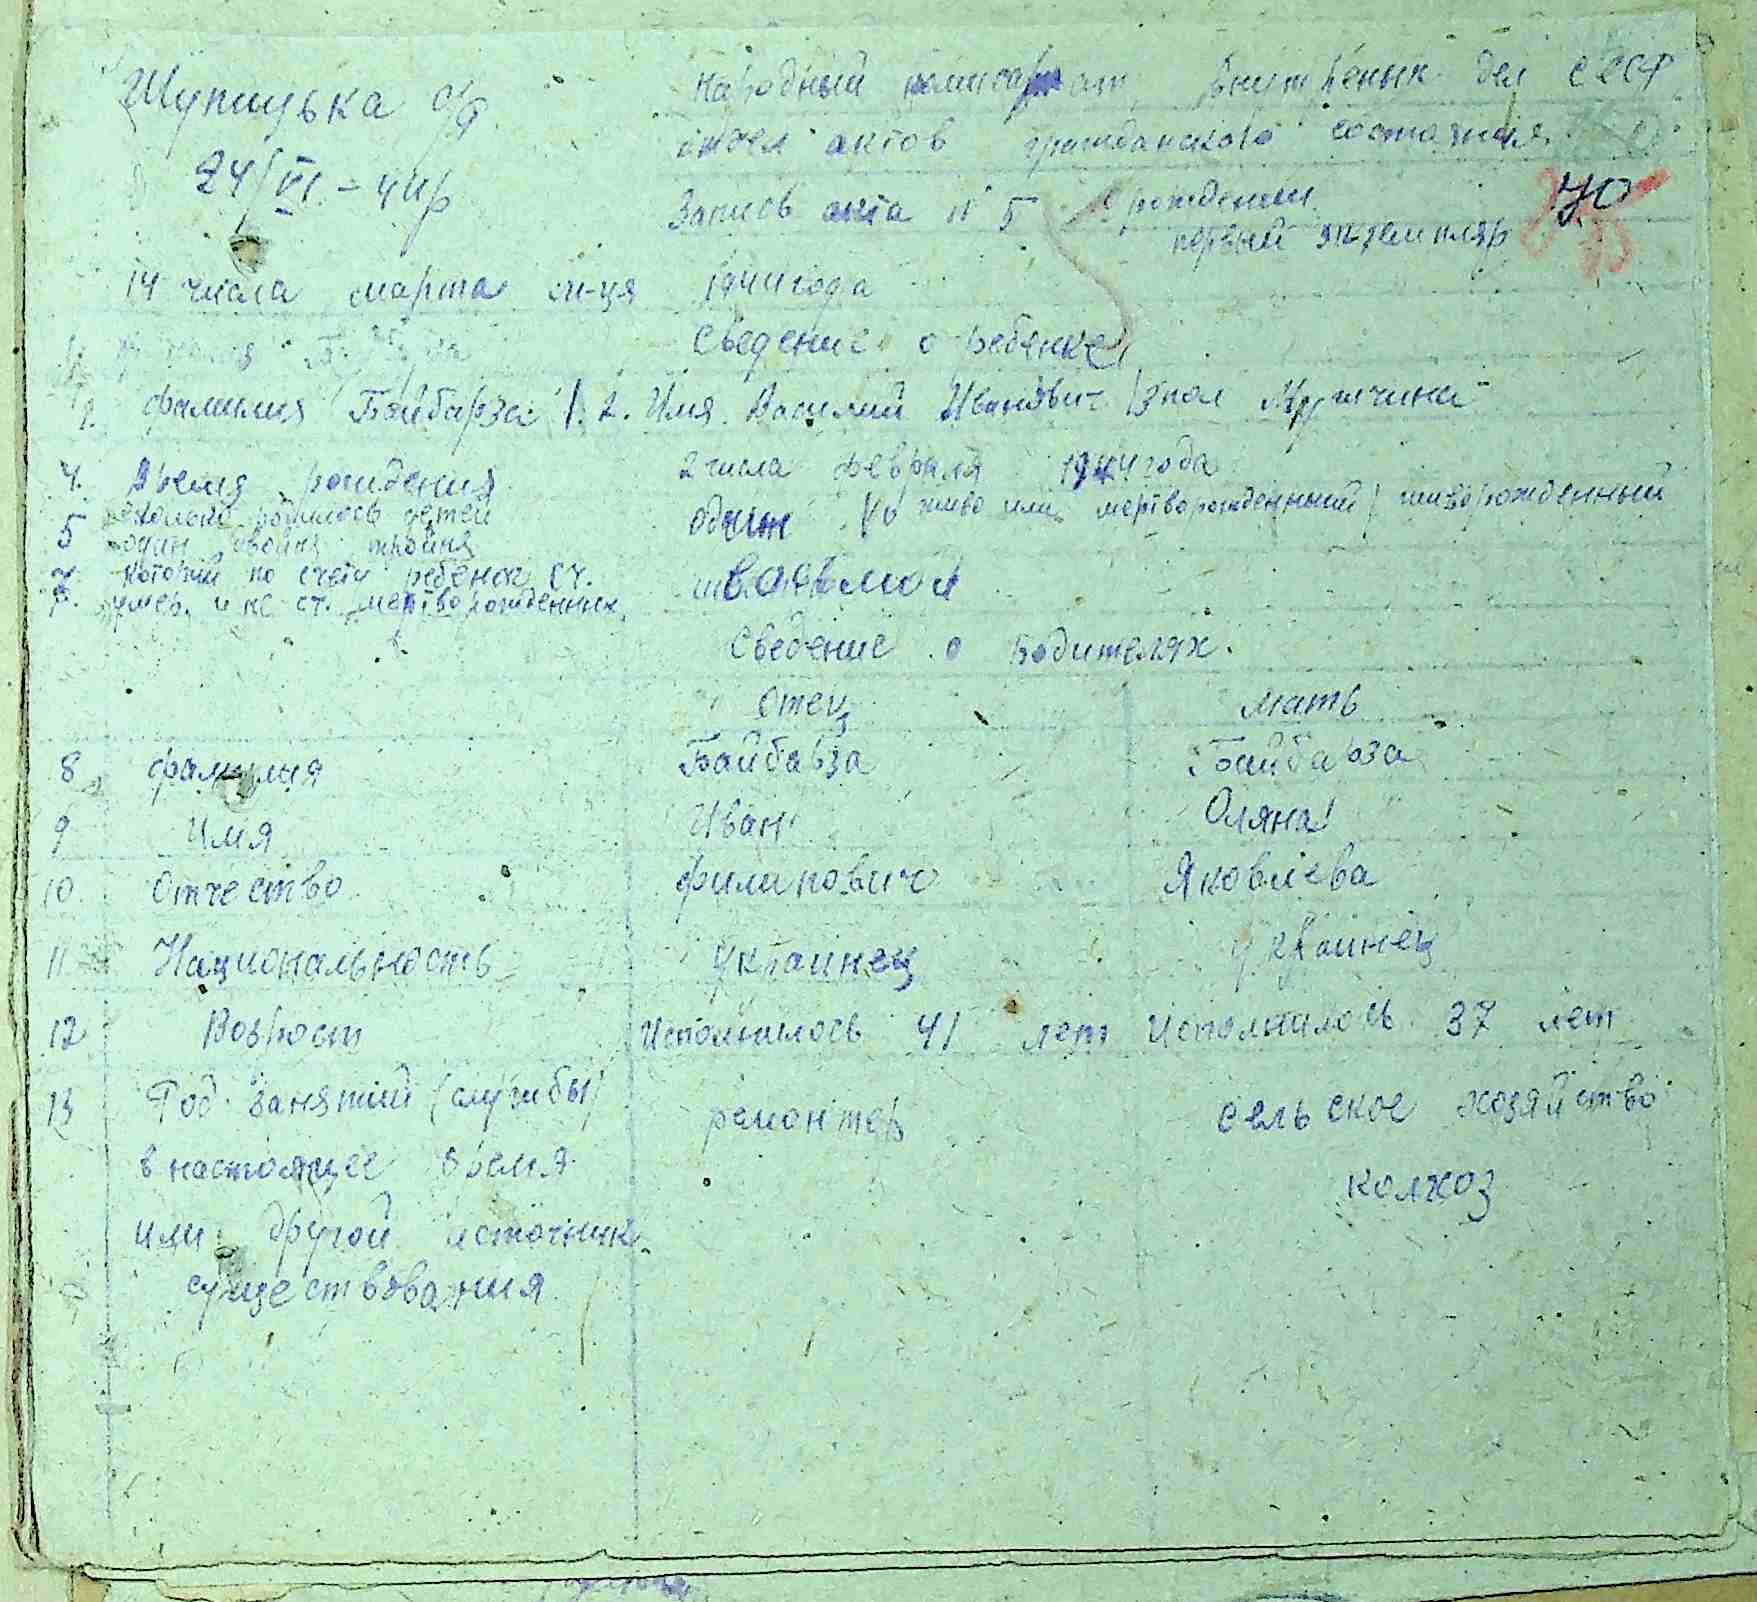 Шуписька с/р
24/VI - 44р
Народный комисариат Внутреных дел СССР
отдел актов гражданского состояния
Запись акта № 5 о рождении 70
первый экземпляр
14 числа марта м-ця 1944 года
Сведение о ребенке
1. фамилия Байбарза 2. Имя Василий Иванович 3 пол Мужчина
4. Время рождения 2 числа февраля 1944 года
5 сколько родилось детей один двойня тройня один 6 живо или мертворожденный живорожденный
7. который по счету ребенок сч. умер. и не сч. мертворожденных
Сведение о Родителях.
Отец мать
8 фамилия Байбарза Байбарза
9 Имя Иван Оляна
10 Отчество Филипович Яковлева
11 Национальность украинец украинец
12 Возрост Исполнилось 41 лет Исполнилось 37 лет
13 Род занятий (службы) ремонтер сельское хозяйство
в настоящее время колхоз
или другой источник
существования